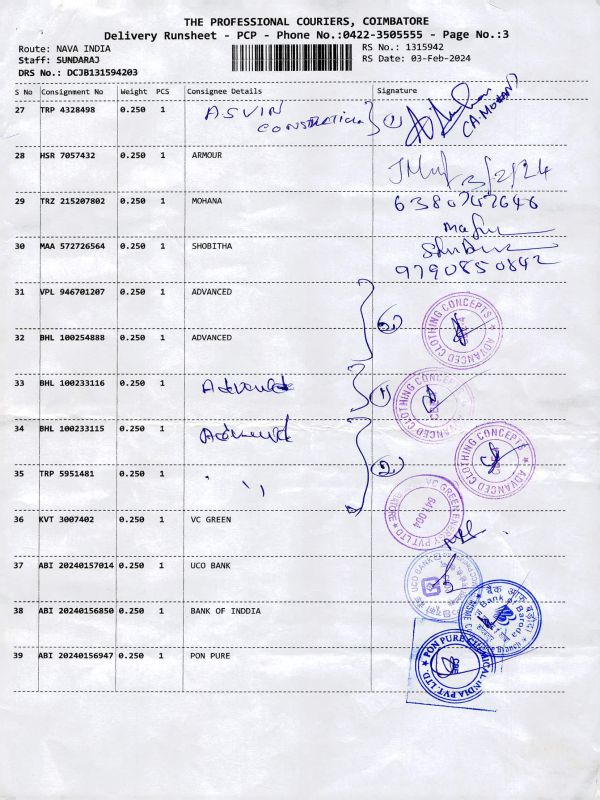 THE PROFESSIONAL COURIERS, COIMBATORE
Delivery Runsheet - PCP - Phone No.:0422-3505555 - Page No.:3
Route: NAVA INDIA
Staff: SUNDARAJ
DRS No.: DCJB131594203
RS No.: 1315942
RS Date: 03-Feb-2024
S No Consignment No Weight PCS Consignee Details Signature
27 TRP 4328498 0.250 1 ASVIN
CA. MOHAN
28 HSR 7057432 0.250 1 ARMOUR 3/2/24
29 TRZ 215207802 0.250 1 MOHANA 6380747646
30 MAA 572726564 0.250 1 SHOBITHA
9790850842
31 VPL 946701207 0.250 1 ADVANCED
32 BHL 100254888 0.250 1 ADVANCED ADVANCED CLOTHING CONCEPTS
33 BHL 100233116 0.250 1 Advanced ADVANCED CLOTHING CONCEPTS
34 BHL 100233115 0.250 1 Advanced ADVANCED CLOTHING CONCEPTS
35 TRP 5951481 0.250 1 " 2
36 KVT 3007402 0.250 1 VC GREEN VC GREEN ENERGY PVT LTD 641 004
37 ABI 20240157014 0.250 1 UCO BANK UCO BANK
38 ABI 20240156850 0.250 1 BANK OF INDDIA बैंक ऑफ़ बड़ौदा Bank of Baroda
39 ABI 20240156947 0.250 1 PON PURE PON PURE CHEMICAL INDIA PVT LTD.